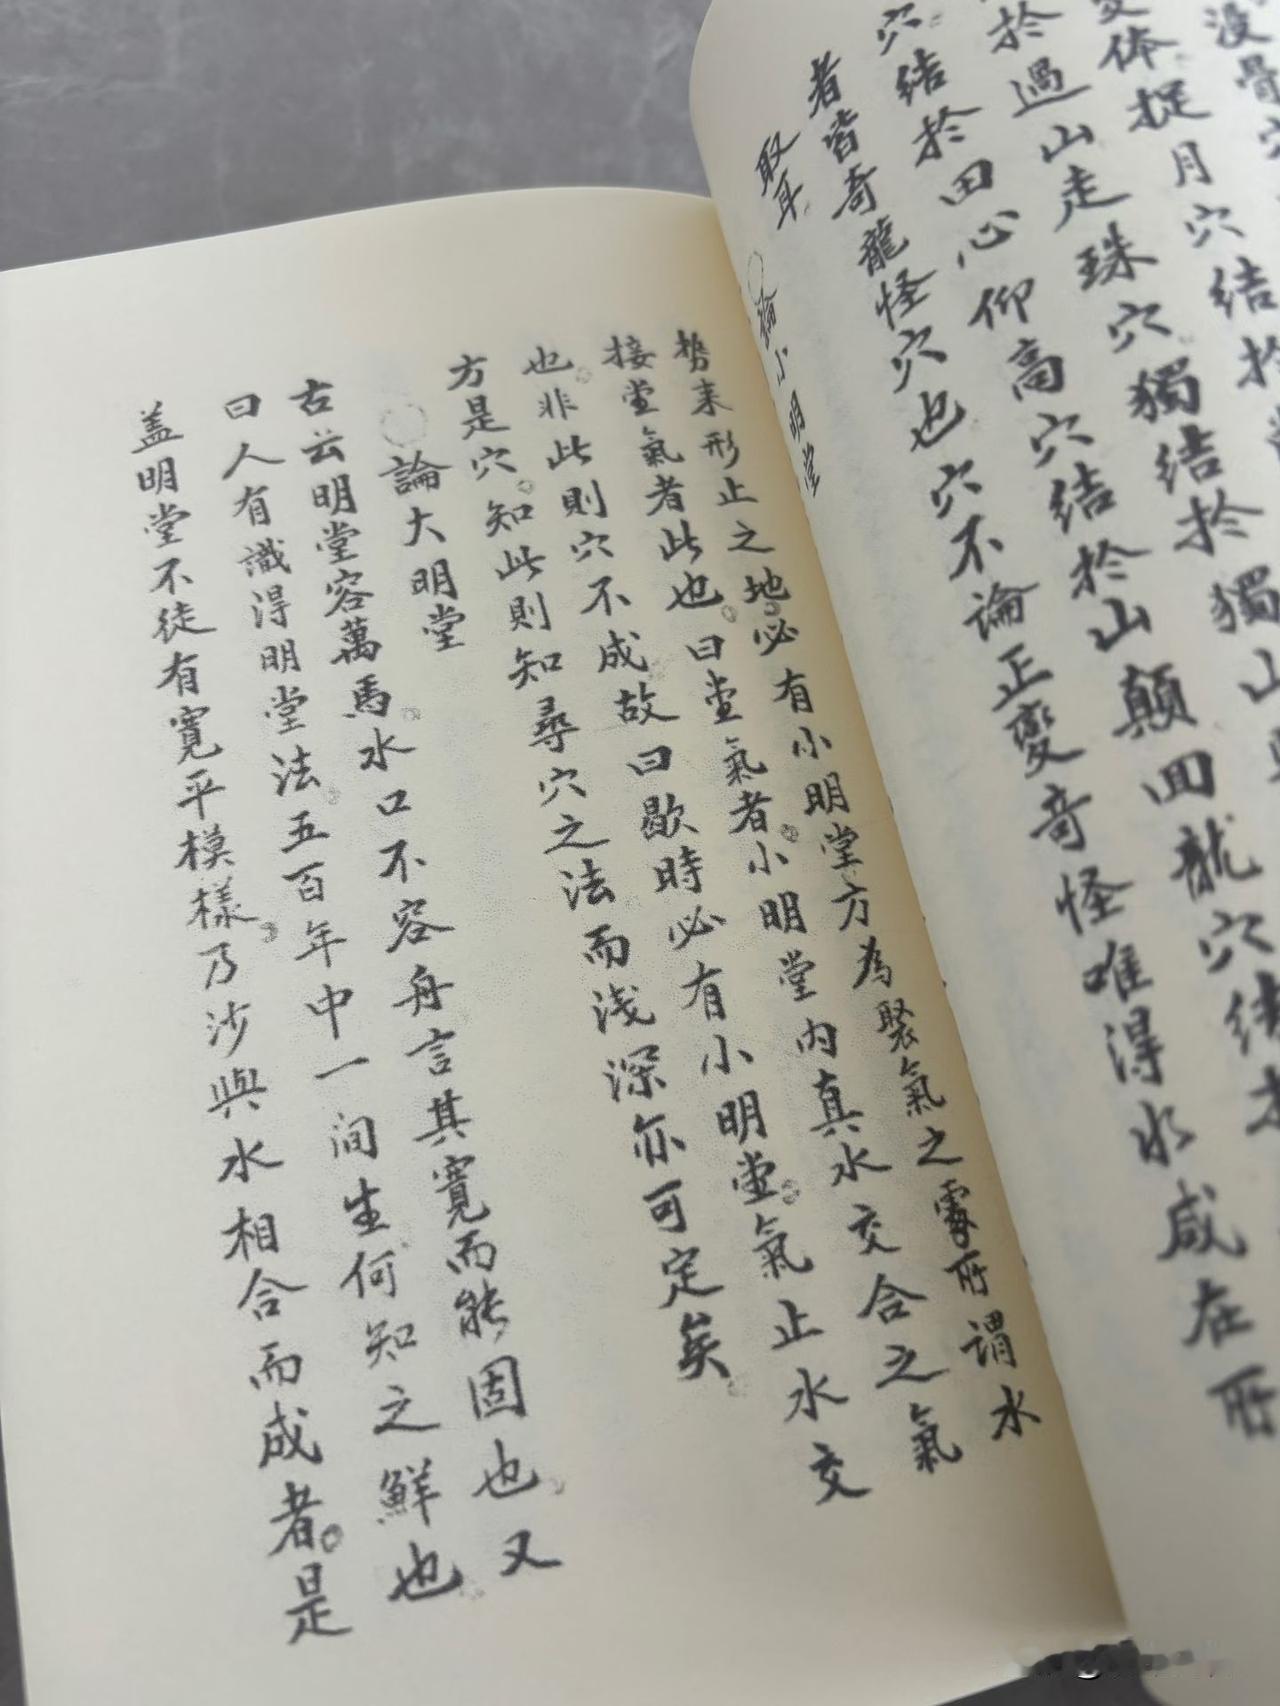 没骨穴
变体捉月穴結於
於過山走珠穴獨結於獨山
穴結於田心仰高穴結於山顛回龍穴結於
者皆奇龍怪穴也穴不論正變奇怪唯得水咸在所
取耳
論小明堂
勢来形止之地必有小明堂方為聚氣之處所謂水
接堂氣者此也曰堂氣者小明堂内真水交合之氣
也非此則穴不成故曰歇時必有小明堂氣止水交
方是穴知此則知尋穴之法而浅深亦可定矣
論大明堂
古云明堂容萬馬水口不容舟言其寛而能固也又
曰人有識得明堂法五百年中一间生何知之鮮也
盖明堂不徒有寛平模樣乃沙與水相合而成者是